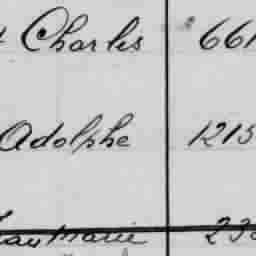 Charles 661
Adolphe 1215
Marie 23